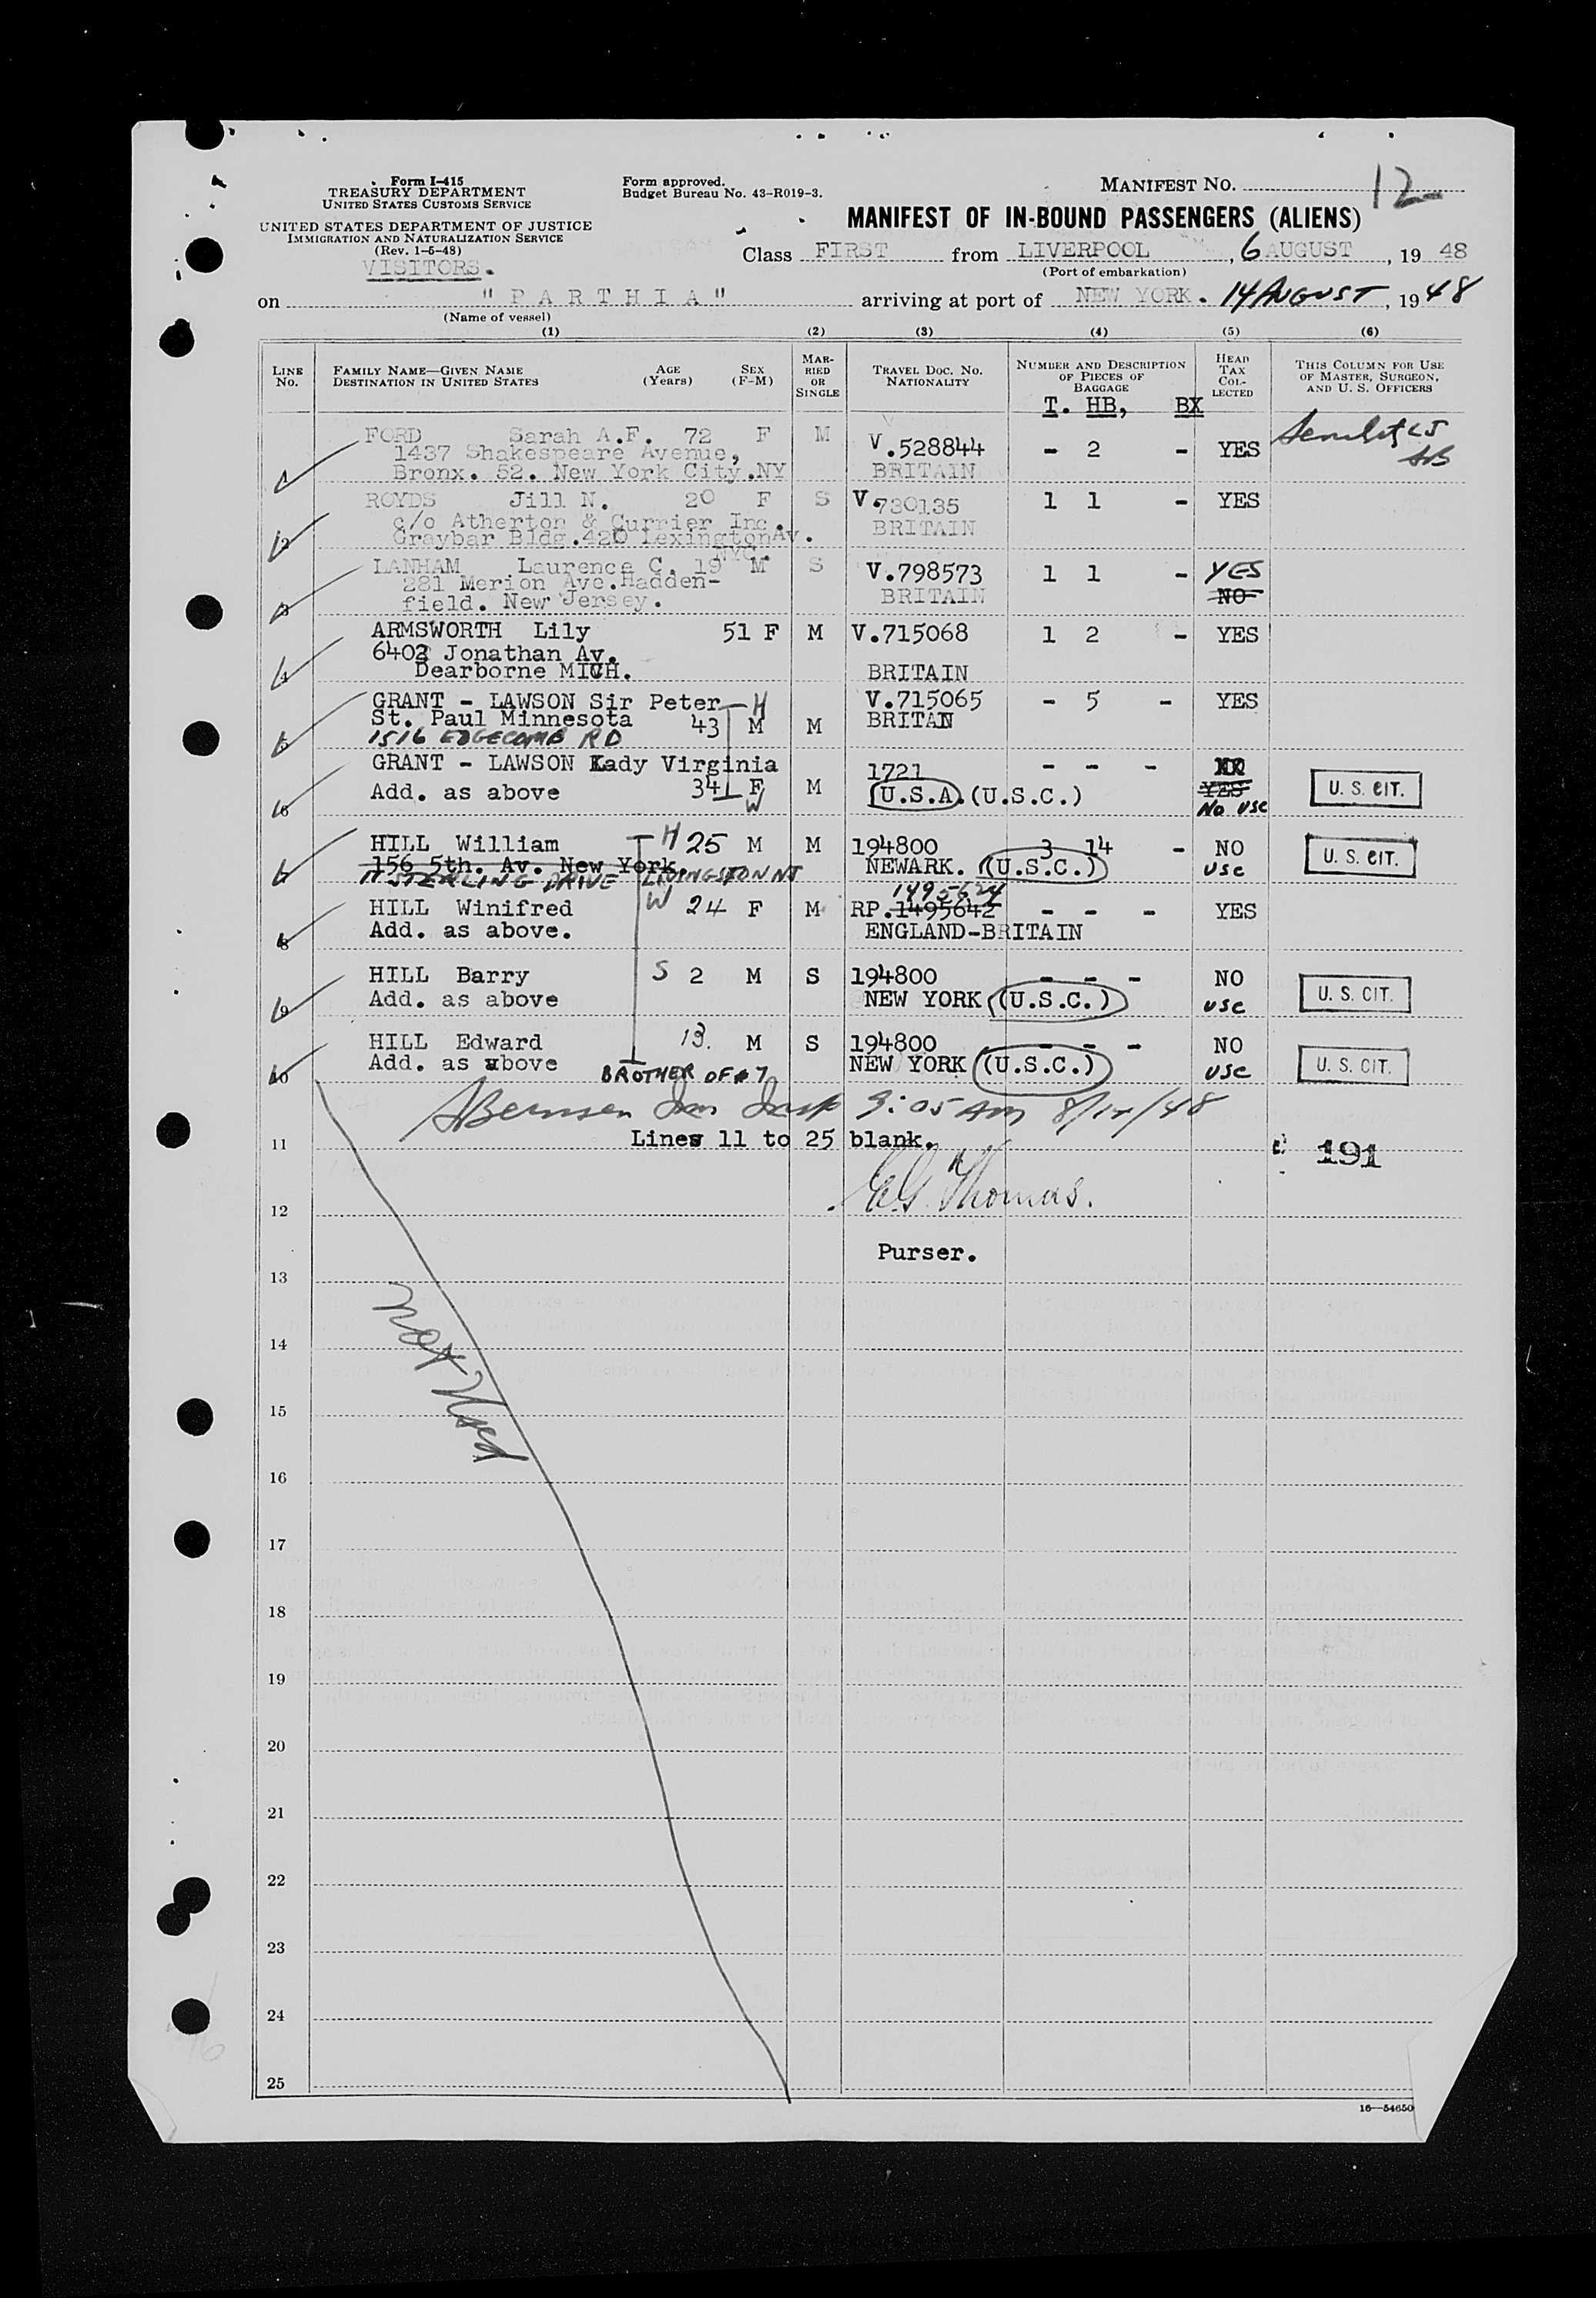 Form I-415
TREASURY DEPARTMENT
UNITED STATES CUSTOMS SERVICE
UNITED STATES DEPARTMENT OF JUSTICE
IMMIGRATION AND NATURALIZATION SERVICE
(Rev. 1-6-48)
VISITORS.
Form approved.
Budget Bureau No. 43-R019-3.
MANIFEST NO. 12
MANIFEST OF IN-BOUND PASSENGERS (ALIENS)
Class FIRST from LIVERPOOL, 6 AUGUST, 19 48
(Port of embarkation)
on "PARTHIA" arriving at port of NEW YORK. 14 AUGUST, 19 48
(Name of vessel)
(1) (2) (3) (4) (5) (6)
LINE NO. FAMILY NAME—GIVEN NAME DESTINATION IN UNITED STATES AGE (Years) SEX (F-M) MARRIED OR SINGLE TRAVEL DOC. NO. NATIONALITY NUMBER AND DESCRIPTION OF PIECES OF BAGGAGE HEAD TAX COLLECTED THIS COLUMN FOR USE OF MASTER, SURGEON, AND U. S. OFFICERS
T. HB, BX
FORD Sarah A.F. 72 F M V.528844 - 2 - YES
1437 Shakespeare Avenue,
1 Bronx. 52. New York City.NY BRITAIN
ROYDS Jill N. 20 F S V.730135 1 1 - YES
c/o Atherton & Currier Inc. BRITAIN
2 Graybar Bldg.420 Lexington Av.
NYC.
LANHAM Laurence C. 19 M S V.798573 1 1 - YES
281 Merion Ave.Hadden- BRITAIN NO
3 field. New Jersey.
ARMSWORTH Lily 51 F M V.715068 1 2 - YES
6403 Jonathan Av.
4 Dearborne MICH. BRITAIN
GRANT - LAWSON Sir Peter H V.715065 - 5 - YES
St. Paul Minnesota 43 M M BRITAN
5 1516 EDGECOMB RD
GRANT - LAWSON Lady Virginia 1721 - - -
YES
6 Add. as above 34 F M U.S.A.(U.S.C.) NO USC U. S. CIT.
W
HILL William H 25 M M 194800 3 14 - NO U. S. CIT.
156 5th. Av. New York. NEWARK. (U.S.C.) USC
7 11 STERLING DRIVE LIVINGSTON NJ
1495624
HILL Winifred W 24 F M RP.1495642 - - - YES
8 Add. as above. ENGLAND-BRITAIN
HILL Barry S 2 M S 194800 - - - NO
9 Add. as above NEW YORK (U.S.C.) USC U. S. CIT.
HILL Edward 13. M S 194800 - - - NO
10 Add. as above NEW YORK (U.S.C.) USC U. S. CIT.
BROTHER OF #7
9:05 AM 8/14/48
11 Lines 11 to 25 blank. 191
12 E.G. Thomas.
Purser.
13
Not Used
14
15
16
17
18
19
20
21
22
23
24
25
16—54650